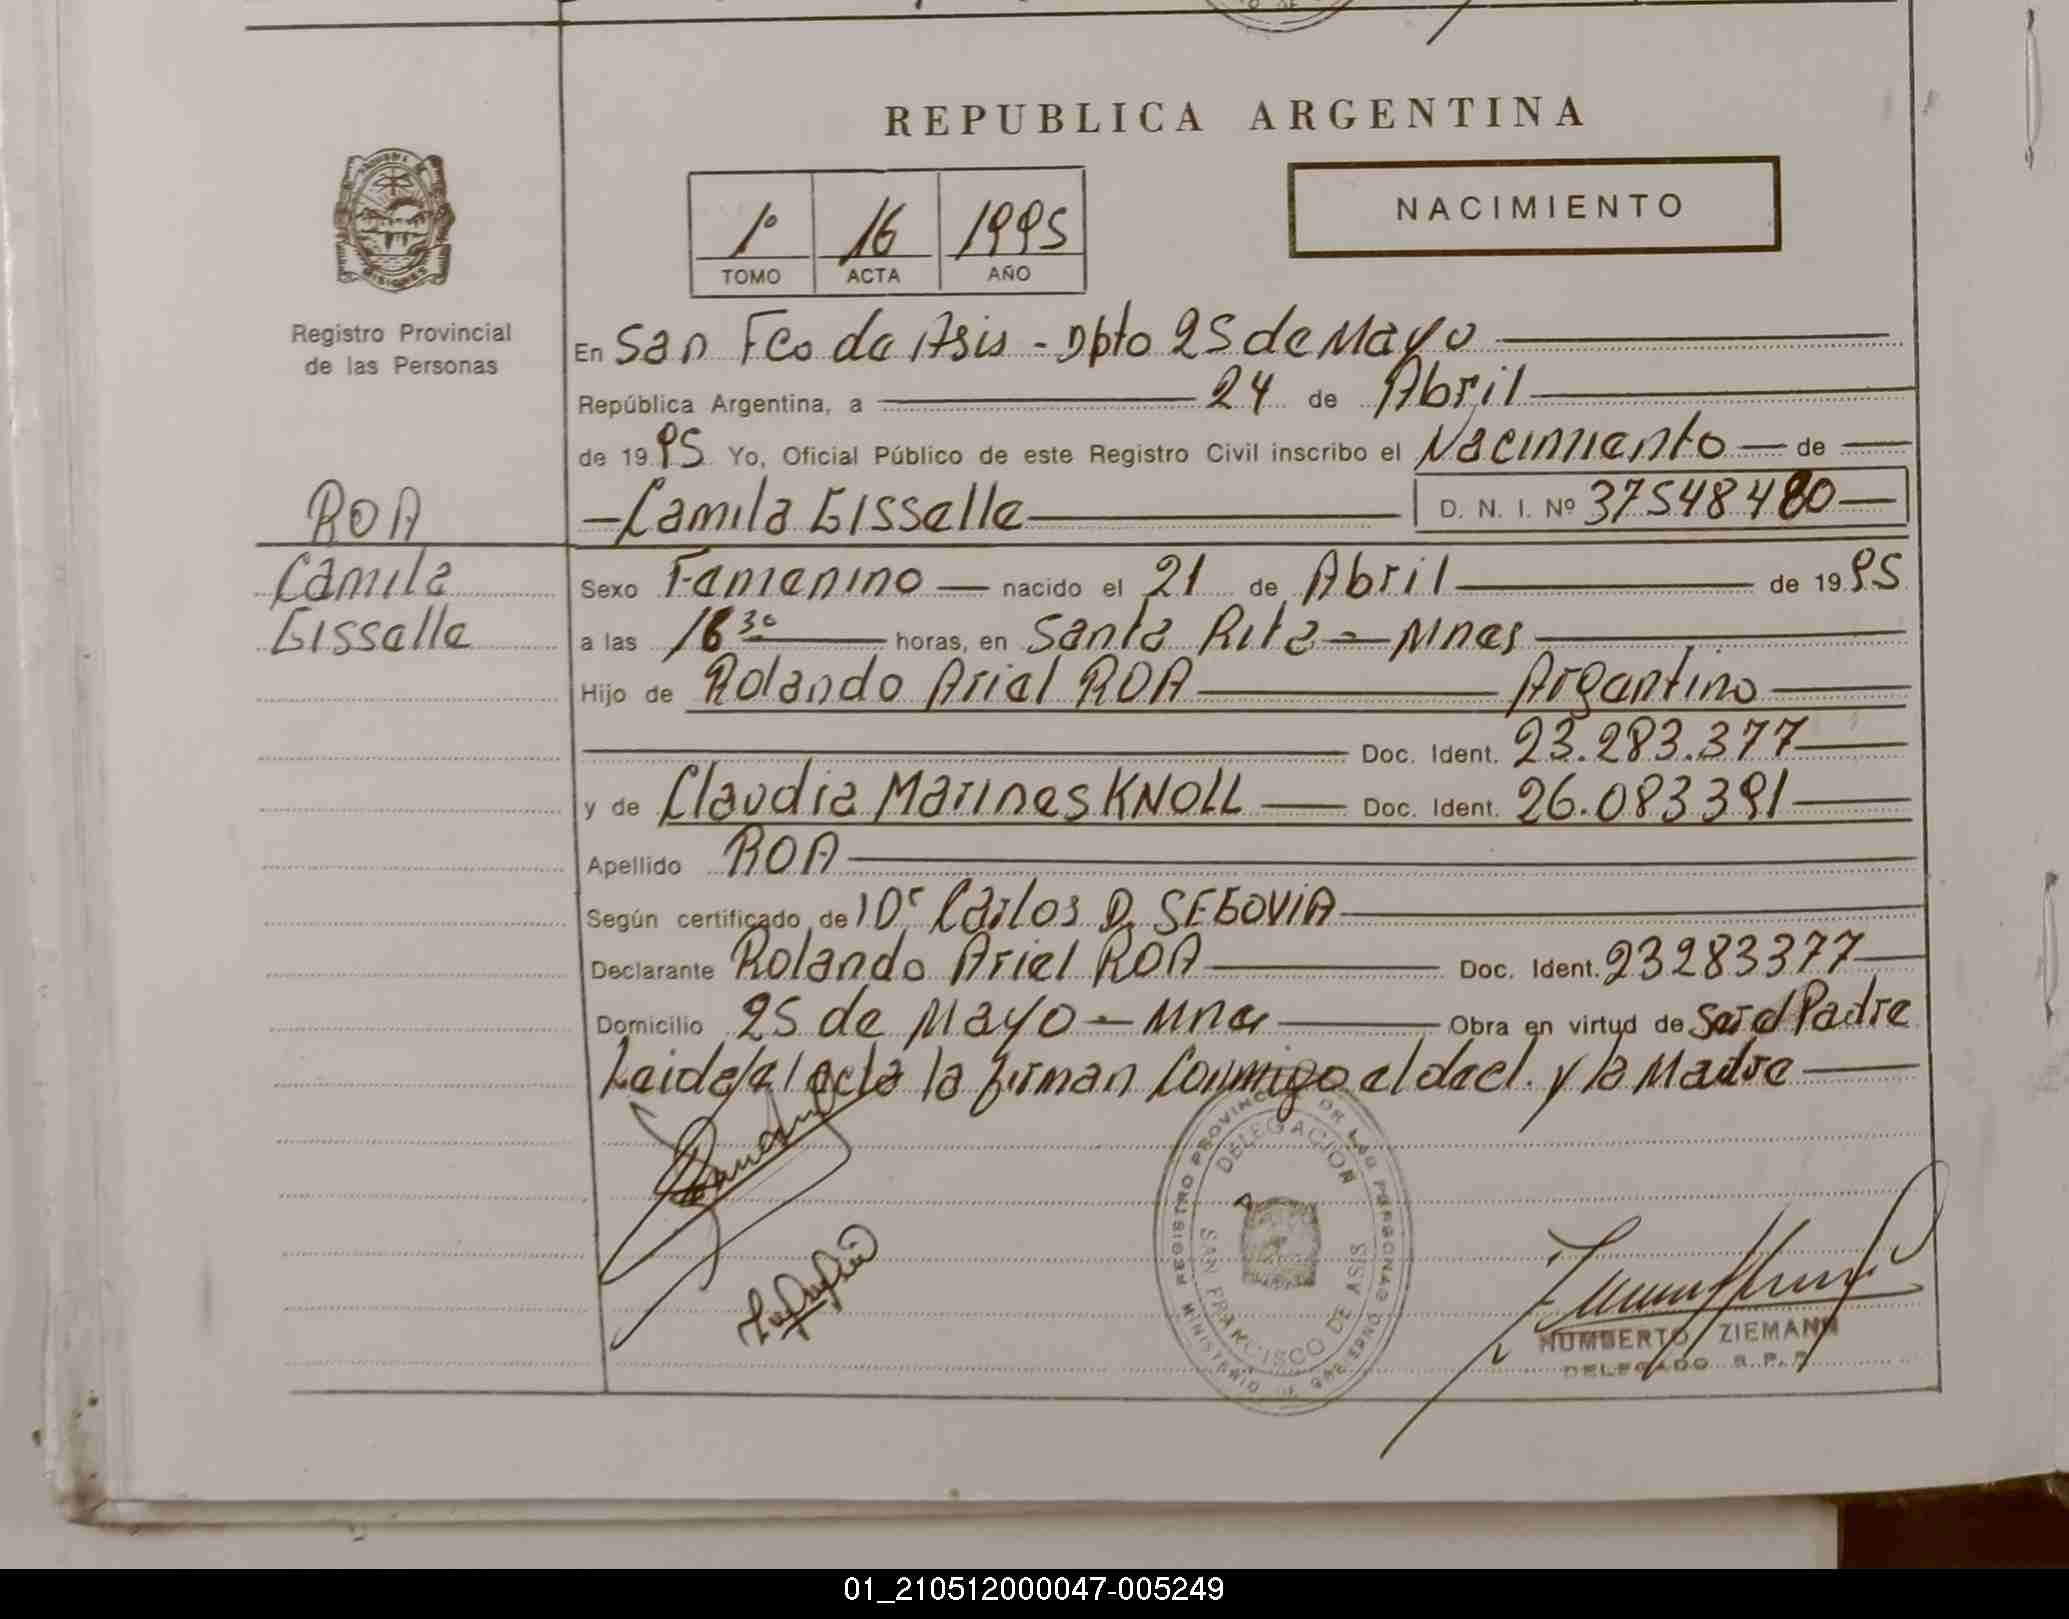 REPUBLICA ARGENTINA
NACIMIENTO
1º 16 1995
TOMO ACTA AÑO
MISIONES
Registro Provincial
de las Personas
En San Fco de Asis - Dpto 25 de Mayo
República Argentina, a 24 de Abril
de 1995 Yo, Oficial Público de este Registro Civil inscribo el Nacimiento de
Camila Gisselle D. N. I. Nº 37548480
ROA
Camila
Gisselle
Sexo Femenino nacido el 21 de Abril de 1995
a las 16 30 horas, en Santa Rita - Mnes
Hijo de Rolando Ariel ROA Argentino
Doc. Ident. 23.283.377
y de Claudia Marines KNOLL Doc. Ident. 26.083391
Apellido ROA
Según certificado de l Dr Carlos D. SEGOVIA
Declarante Rolando Ariel ROA Doc. Ident. 23283377
Domicilio 25 de Mayo - Mnes Obra en virtud de ser el Padre
Leida el acta la firman Conmigo el decl. y la Madre
REGISTRO PROVINCIAL DE LAS PERSONAS
MINISTERIO DE GOBIERNO
DELEGACION
SAN FRANCISCO DE ASIS
HUMBERTO ZIEMANN
DELEGADO R. P. P.
01_210512000047-005249